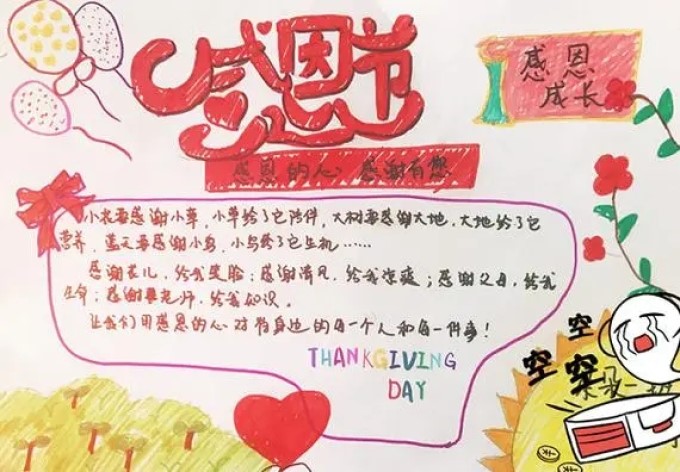 感恩节
感恩
成长
感恩的心 感谢有您
小花要感谢小草,小草给了它陪伴,大树要感谢大地,大地给了它
营养,蓝天要感谢小鸟,小鸟给了它生机……
感谢花儿,给我笑脸;感谢清风,给我凉爽;感谢父母,给我
生命;感谢老师,给我知识。
让我们用感恩的心对待身边的每一个人和每一件事!
THANKGIVING
DAY
空
空 空